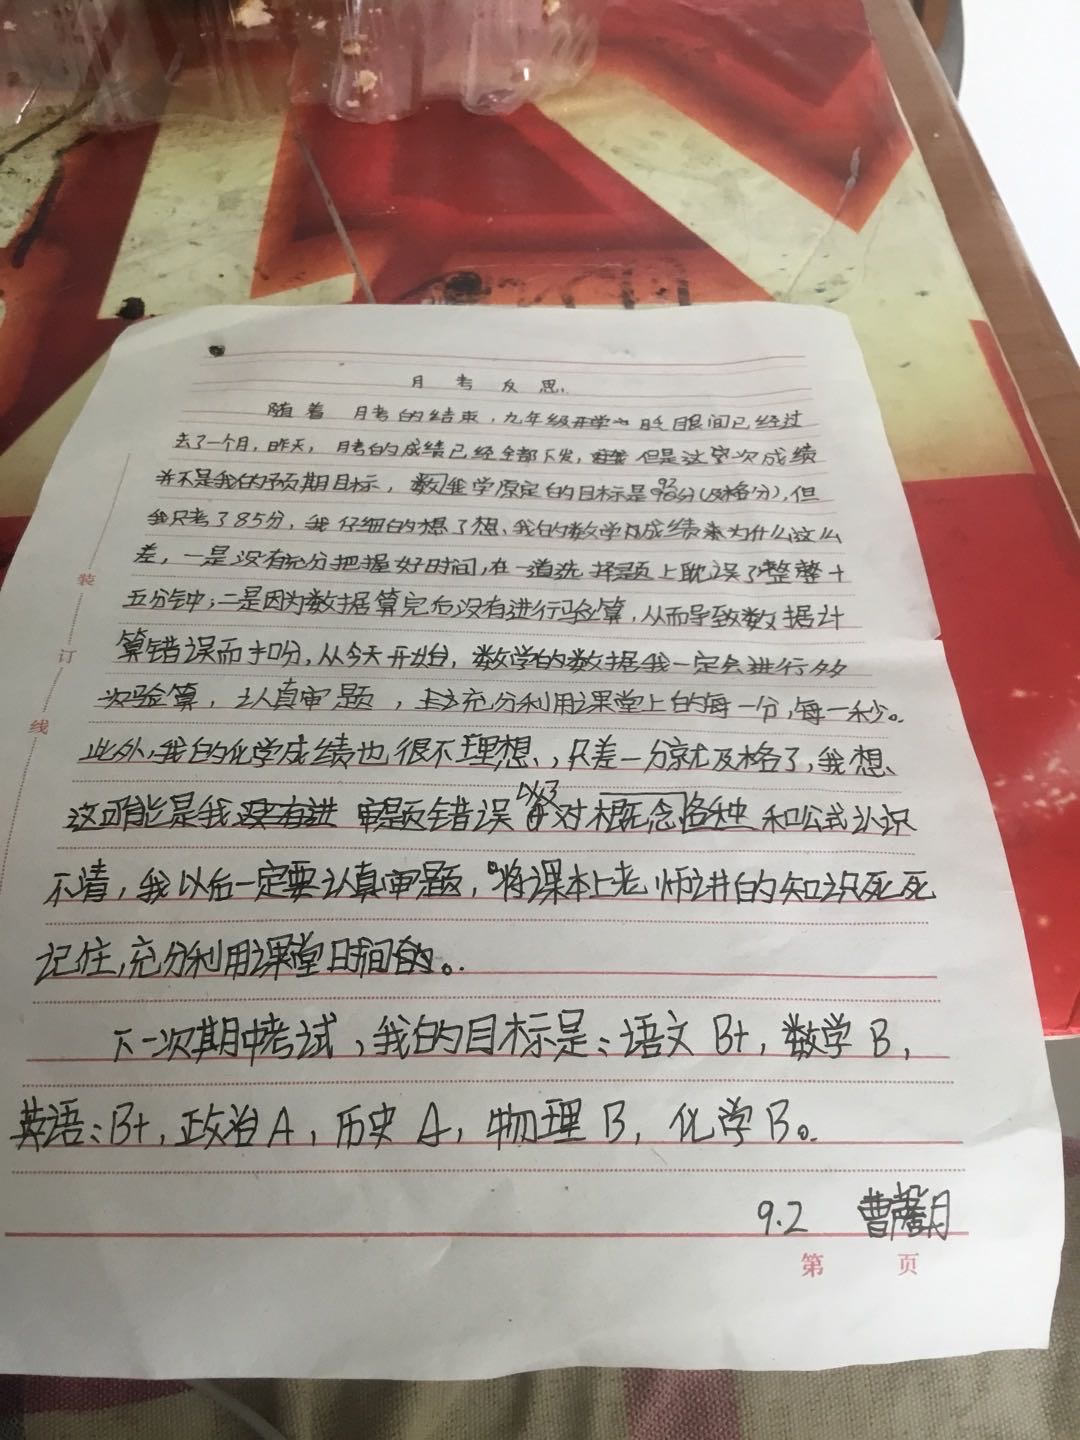 月考反思.
随着 月考的结束,九年级开学 眨眼间已经过
去了一个月,昨天,月考的成绩已经全部下发,但是这次成绩
并不是我的预期目标,数学原定的目标是 分(及格分),但
我只考了85分,我仔细的想了想、我的数学成绩为什么这么
差,一是没有充分把握好时间,在一道选择题上耽误了整整十
五分钟;二是因为数据算完后没有进行验算,从而导致数据计
算错误而扣分,从今天开始,数学的数据我一定会进行多
次验算,认真审题,充分利用课堂上的每一分,每一秒。
此外,我的化学成绩也很不理想、,只差一分就及格了,我想、
这可能是我 审题错误 以及对概念 和公式认识
不清,我以后一定要认真审题,将课本上老师讲的知识死死
记住,充分利用课堂时间。.
下一次期中考试,我的目标是:语文 B+,数学 B,
英语:B+,政治 A,历史 A,物理 B,化学 B。
9.2 曹馨月
第 页
装
订
线